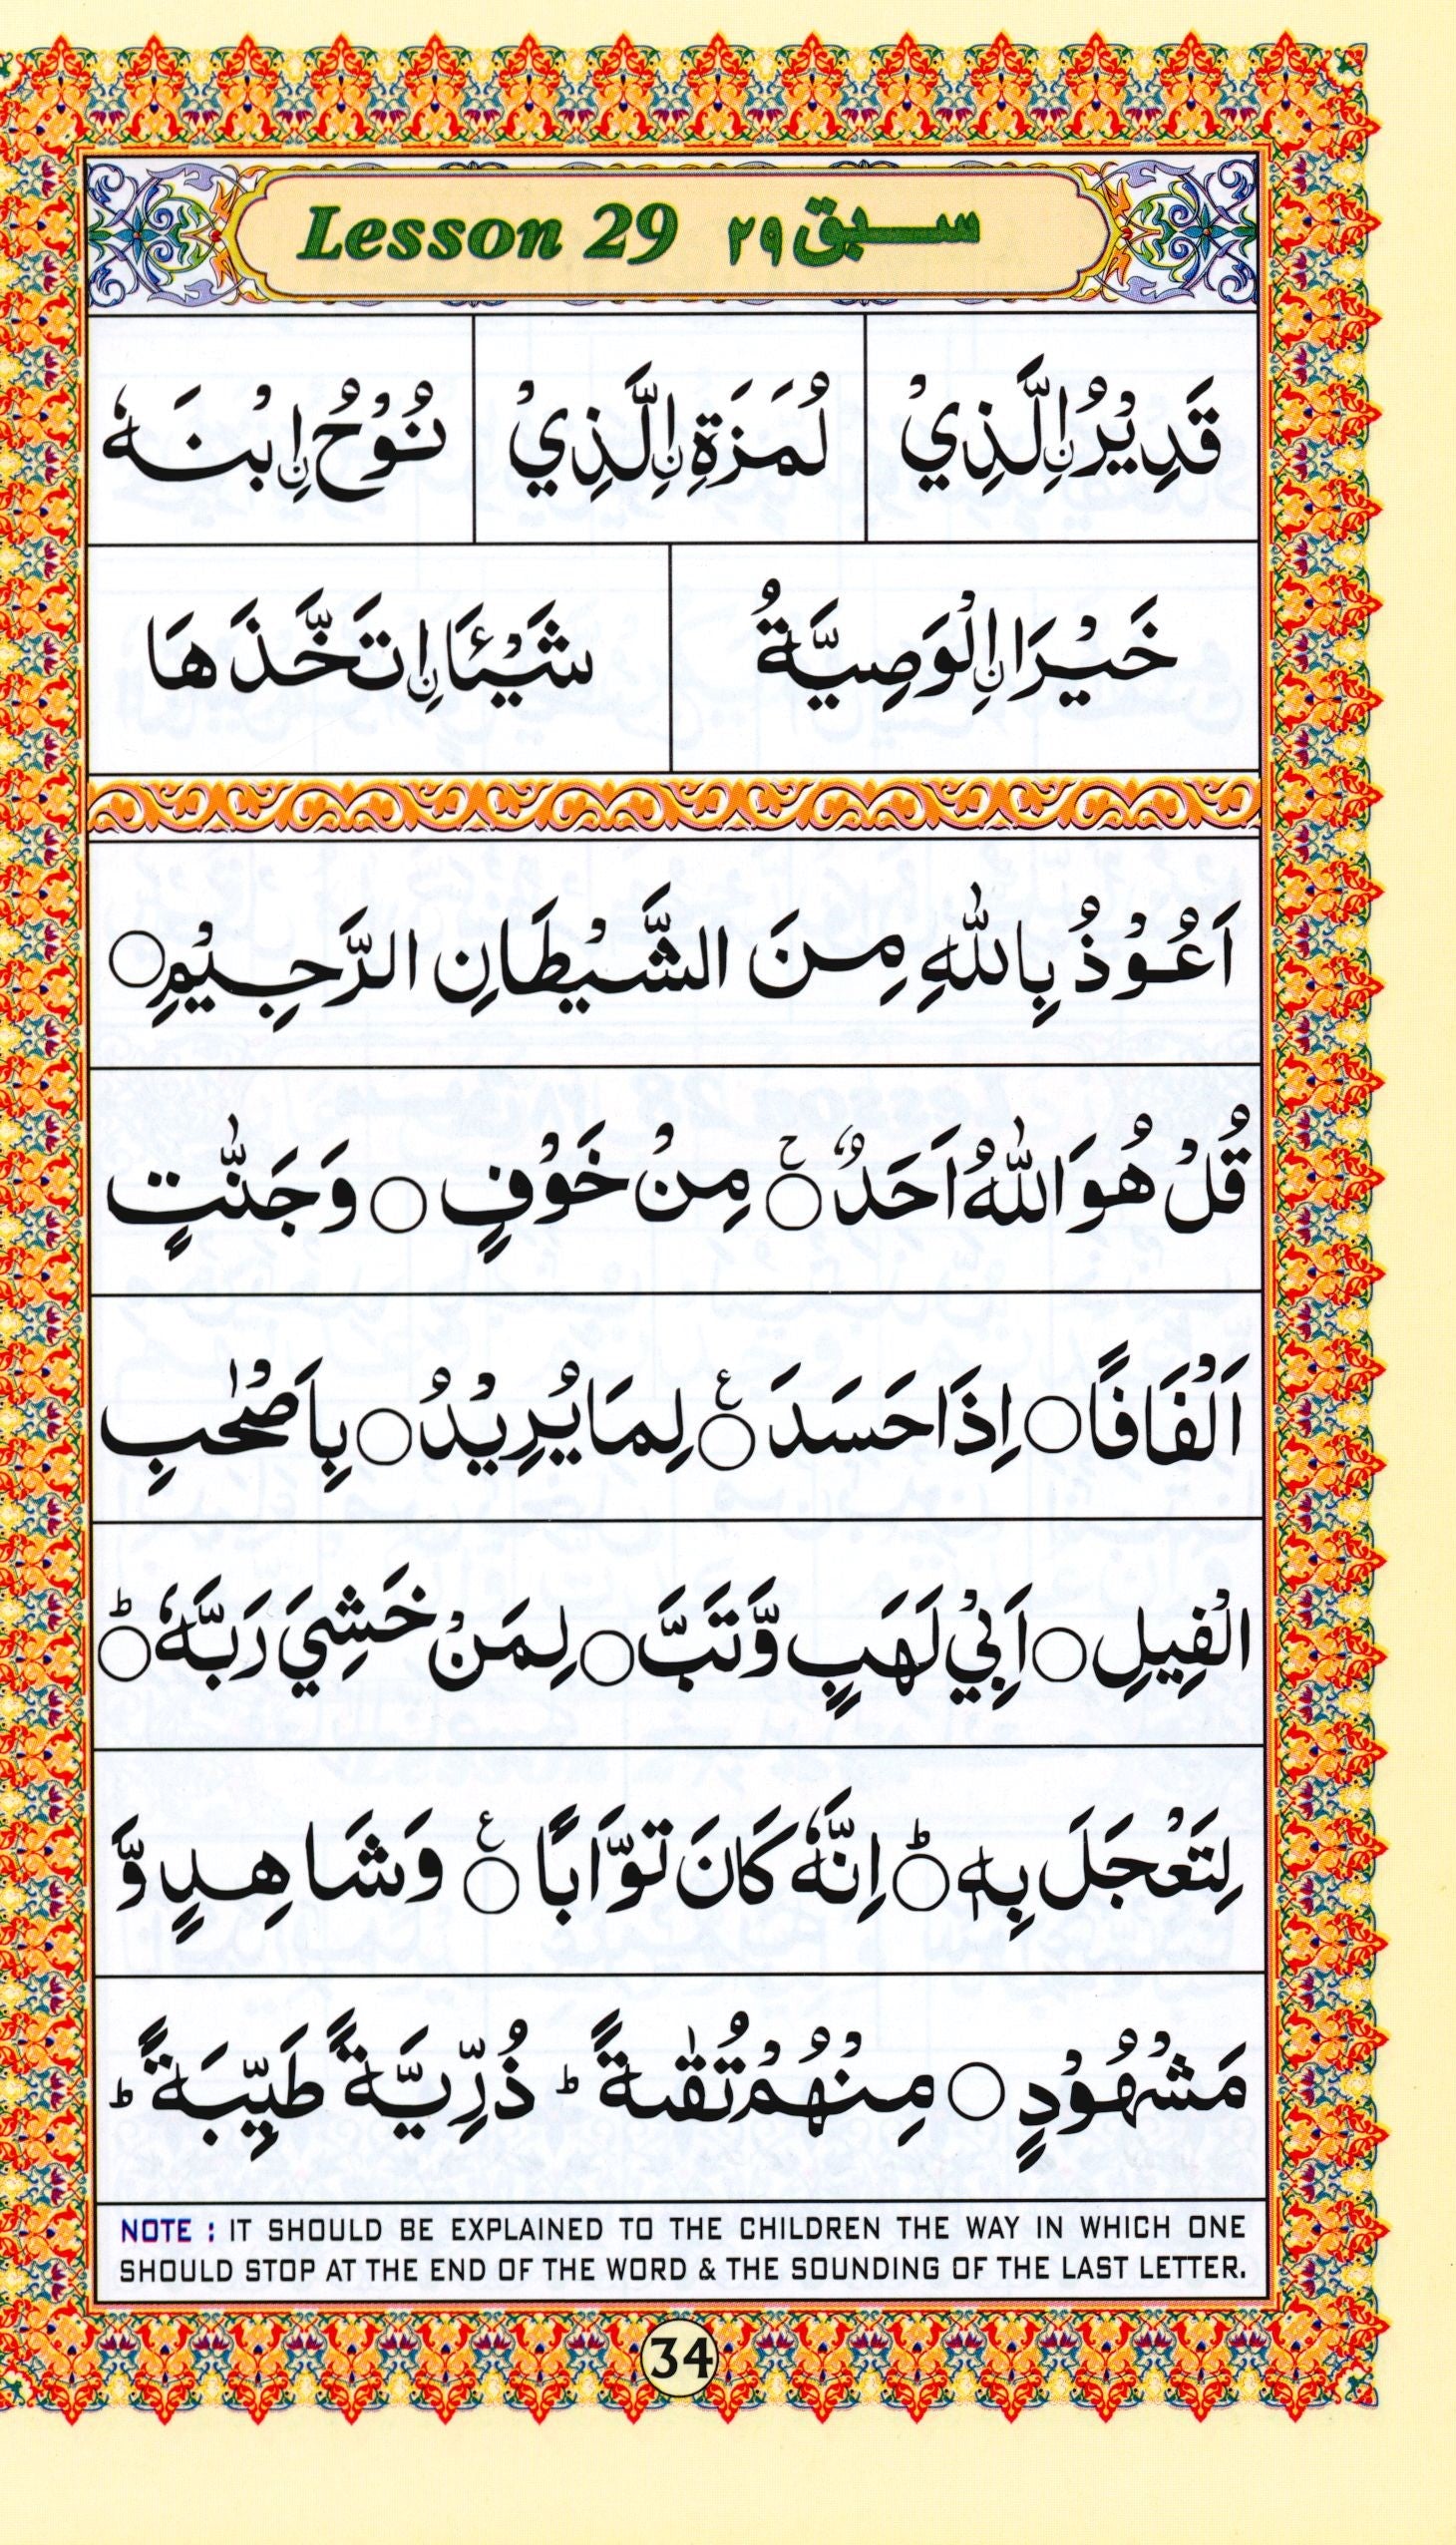 Lesson 29 سبق ٢٩
قَدِيْرُ نِ الَّذِيْ لُمَزَةِ نِ الَّذِيْ نُوْحُ نِ ابْنَهٗ
خَيْرَا نِ الْوَصِيَّةُ شَيْئَا نِ اتَّخَذَهَا
اَعُوْذُ بِاللّٰهِ مِنَ الشَّيْطَانِ الرَّجِيْمِ ○
قُلْ هُوَ اللّٰهُ اَحَدٌ ○ۚ مِنْ خَوْفٍ ○ وَجَنّٰتٍ
اَلْفَافًا ○ اِذَا حَسَدَ ○ع لِمَا يُرِيْدُ ○ بِاَصْحٰبِ
الْفِيلِ ○ اَبِيْ لَهَبٍ وَّتَبَّ ○ لِمَنْ خَشِيَ رَبَّهٗ ○ؕ
لِتَعْجَلَ بِهٖ ○ؕ اِنَّهٗ كَانَ تَوَّابًا ○ع وَشَاهِدٍ وَّ
مَشْهُوْدٍ ○ مِنْهُمْ تُقٰىةً ؕ ذُرِّيَّةً طَيِّبَةً ؕ
NOTE : IT SHOULD BE EXPLAINED TO THE CHILDREN THE WAY IN WHICH ONE
SHOULD STOP AT THE END OF THE WORD & THE SOUNDING OF THE LAST LETTER.
34